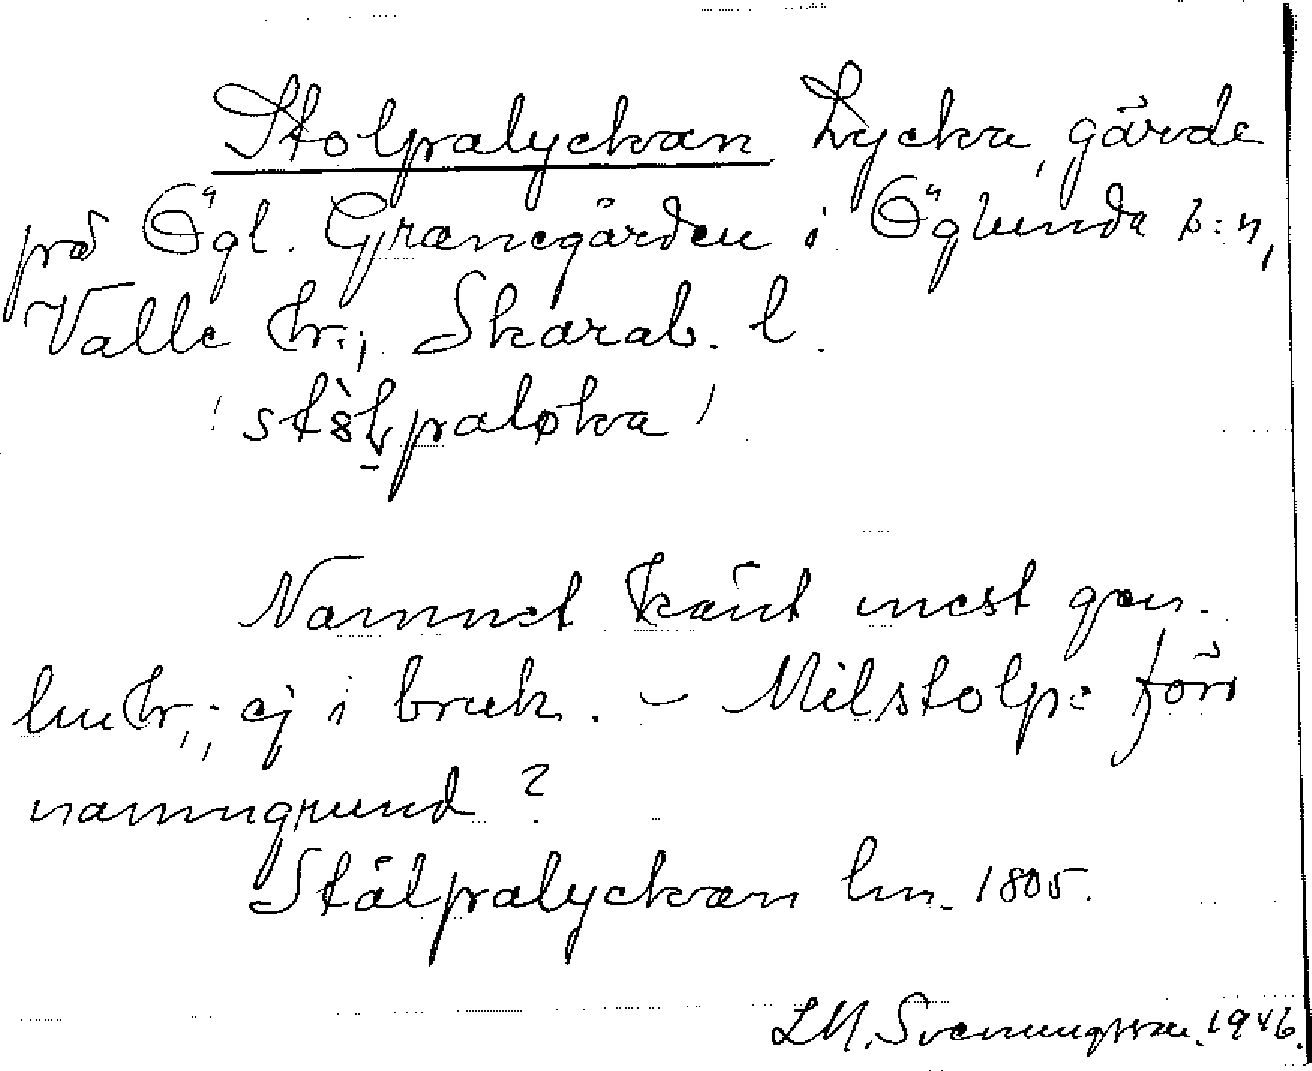 Stolpalyckan Lycka, gärde
på Ögl. Granegården i Öglunda s:n,
Valle hr., Skarab. l.
Namnet känt mest gen.
lm hr,; ej i bruk. – Milstolpe förr
namngrund?
Stålpalyckan lm. 1805.
LM. Svenungsson. 1946.